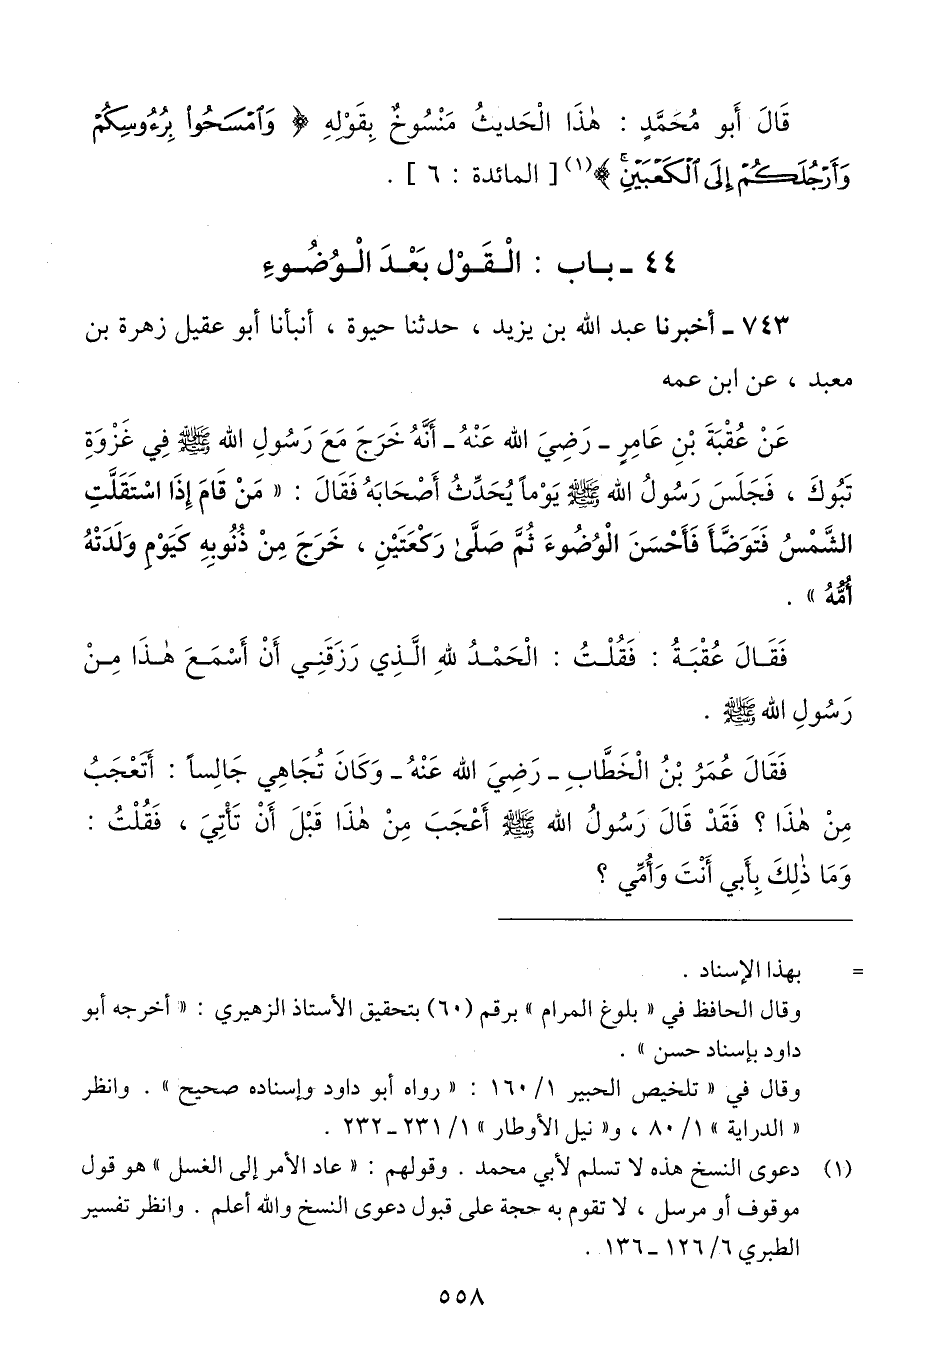 قَالَ أَبو مُحَمَّدٍ : هٰذَا الْحَديثُ مَنْسُوخٌ بِقَوْلِهِ ﴿ وَٱمْسَحُوا۟ بِرُءُوسِكُمْ
وَأَرْجُلَكُمْ إِلَى ٱلْكَعْبَيْنِ ﴾(١) [ المائدة : ٦ ] .
٤٤ ـ بـاب : الْقَوْل بَعْدَ الْوُضُوءِ
٧٤٣ ـ أخبرنا عبد الله بن يزيد ، حدثنا حيوة ، أنبأنا أبو عقيل زهرة بن
معبد ، عن ابن عمه
عَنْ عُقْبَةَ بْنِ عَامِرٍ ـ رَضِيَ الله عَنْهُ ـ أَنَّهُ خَرَجَ مَعَ رَسُولِ الله ﷺ فِي غَزْوَةِ
تَبُوكَ ، فَجَلَسَ رَسُولُ الله ﷺ يَوْماً يُحَدِّثُ أَصْحَابَهُ فَقَالَ : « مَنْ قَامَ إِذَا اسْتَقَلَّتِ
الشَّمْسُ فَتَوَضَّأَ فَأَحْسَنَ الْوُضُوءَ ثُمَّ صَلَّىٰ رَكْعَتَيْنِ ، خَرَجَ مِنْ ذُنُوبِهِ كَيَوْمِ وَلَدَتْهُ
أُمُّهُ » .
فَقَالَ عُقْبَةُ : فَقُلْتُ : الْحَمْدُ لله الَّذِي رَزَقَنِي أَنْ أَسْمَعَ هٰذَا مِنْ
رَسُولِ الله ﷺ .
فَقَالَ عُمَرُ بْنُ الْخَطَّابِ ـ رَضِيَ الله عَنْهُ ـ وَكَانَ تُجَاهِي جَالِساً : أَتَعْجَبُ
مِنْ هٰذَا ؟ فَقَدْ قَالَ رَسُولُ الله ﷺ أَعْجَبَ مِنْ هٰذَا قَبْلَ أَنْ تَأْتِيَ ، فَقُلْتُ :
وَمَا ذٰلِكَ بِأَبي أَنْتَ وَأُمِّي ؟
= بهذا الإسناد .
وقال الحافظ في « بلوغ المرام » برقم (٦٠) بتحقيق الأستاذ الزهيري : « أخرجه أبو
داود بإسناد حسن » .
وقال في « تلخيص الحبير ١/ ١٦٠ : « رواه أبو داود وإسناده صحيح » . وانظر
« الدراية » ١/ ٨٠ ، و« نيل الأوطار » ١/ ٢٣١ـ٢٣٢ .
(١) دعوى النسخ هذه لا تسلم لأبي محمد . وقولهم : « عاد الأمر إلى الغسل » هو قول
موقوف أو مرسل ، لا تقوم به حجة على قبول دعوى النسخ والله أعلم . وانظر تفسير
الطبري ٦/ ١٢٦ـ١٣٦ .
٥٥٨